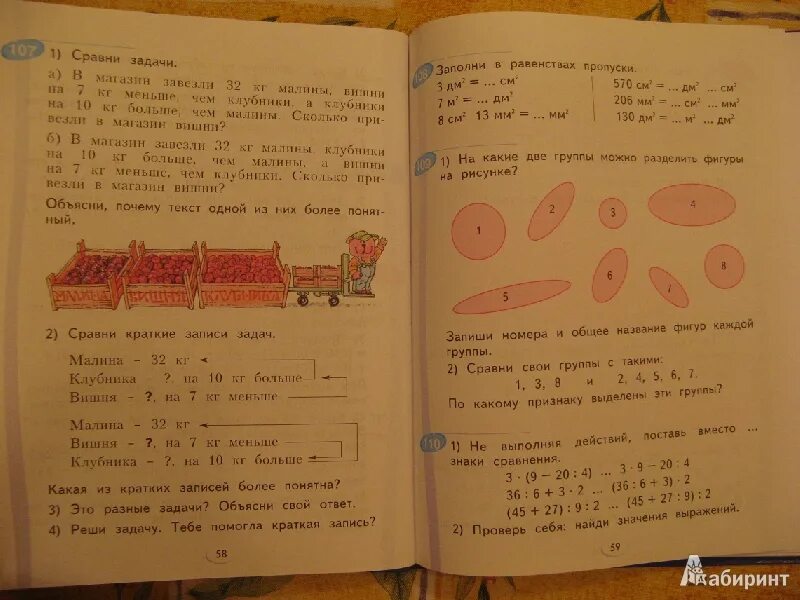 107
1) Сравни задачи.
а) В магазин завезли 32 кг малины, вишни
на 7 кг меньше, чем клубники, а клубники
на 10 кг больше, чем малины. Сколько при-
везли в магазин вишни?
б) В магазин завезли 32 кг малины, клубники
на 10 кг больше, чем малины, а вишни
на 7 кг меньше, чем клубники. Сколько при-
везли в магазин вишни?
Объясни, почему текст одной из них более понят-
ный.
МАЛИНА ВИШНЯ КЛУБНИКА
2) Сравни краткие записи задач.
Малина – 32 кг
Клубника – ?, на 10 кг больше
Вишня – ?, на 7 кг меньше
Малина – 32 кг
Вишня – ?, на 7 кг меньше
Клубника – ?, на 10 кг больше
Какая из кратких записей более понятна?
3) Это разные задачи? Объясни свой ответ.
4) Реши задачу. Тебе помогла краткая запись?
58
108
Заполни в равенствах пропуски.
3 дм² = ... см² 570 см² = ... дм² ... см²
7 м² = ... дм² 206 мм² = ... см² ... мм²
8 см² 13 мм² = ... мм² 130 дм² = ... м² ... дм²
109
1) На какие две группы можно разделить фигуры
на рисунке?
1 2 3 4
5 6 7 8
Запиши номера и общее название фигур каждой
группы.
2) Сравни свои группы с такими:
1, 3, 8 и 2, 4, 5, 6, 7.
По какому признаку выделены эти группы?
110
1) Не выполняя действий, поставь вместо ...
знаки сравнения.
3 · (9 – 20 : 4) ... 3 · 9 – 20 : 4
36 : 6 + 3 · 2 ... (36 : 6 + 3) · 2
(45 + 27) : 9 : 2 ... (45 + 27 : 9) : 2
2) Проверь себя: найди значения выражений.
59
Лабиринт